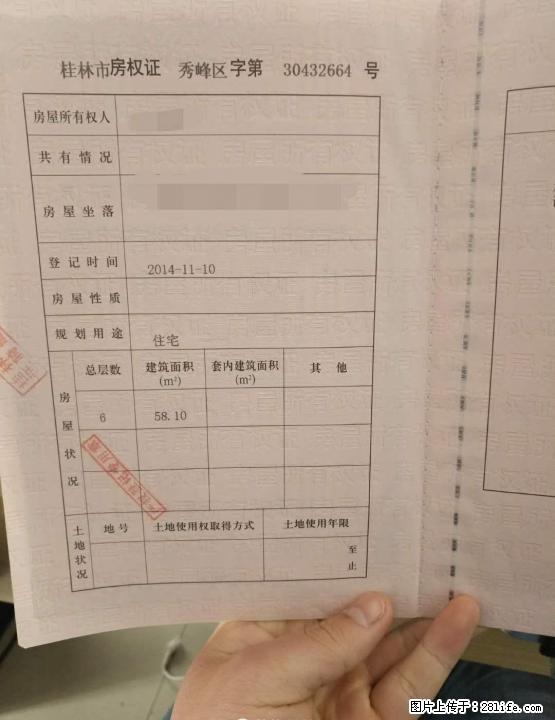 桂林市房权证 秀峰区字第 30432664 号
房屋所有权人
共有情况
房屋坐落
登记时间 2014-11-10
房屋性质
规划用途 住宅
房屋状况
总层数 建筑面积(m²) 套内建筑面积(m²) 其他
6 58.10
土地状况
地号 土地使用权取得方式 土地使用年限
至
止
图片上传于：281life.com